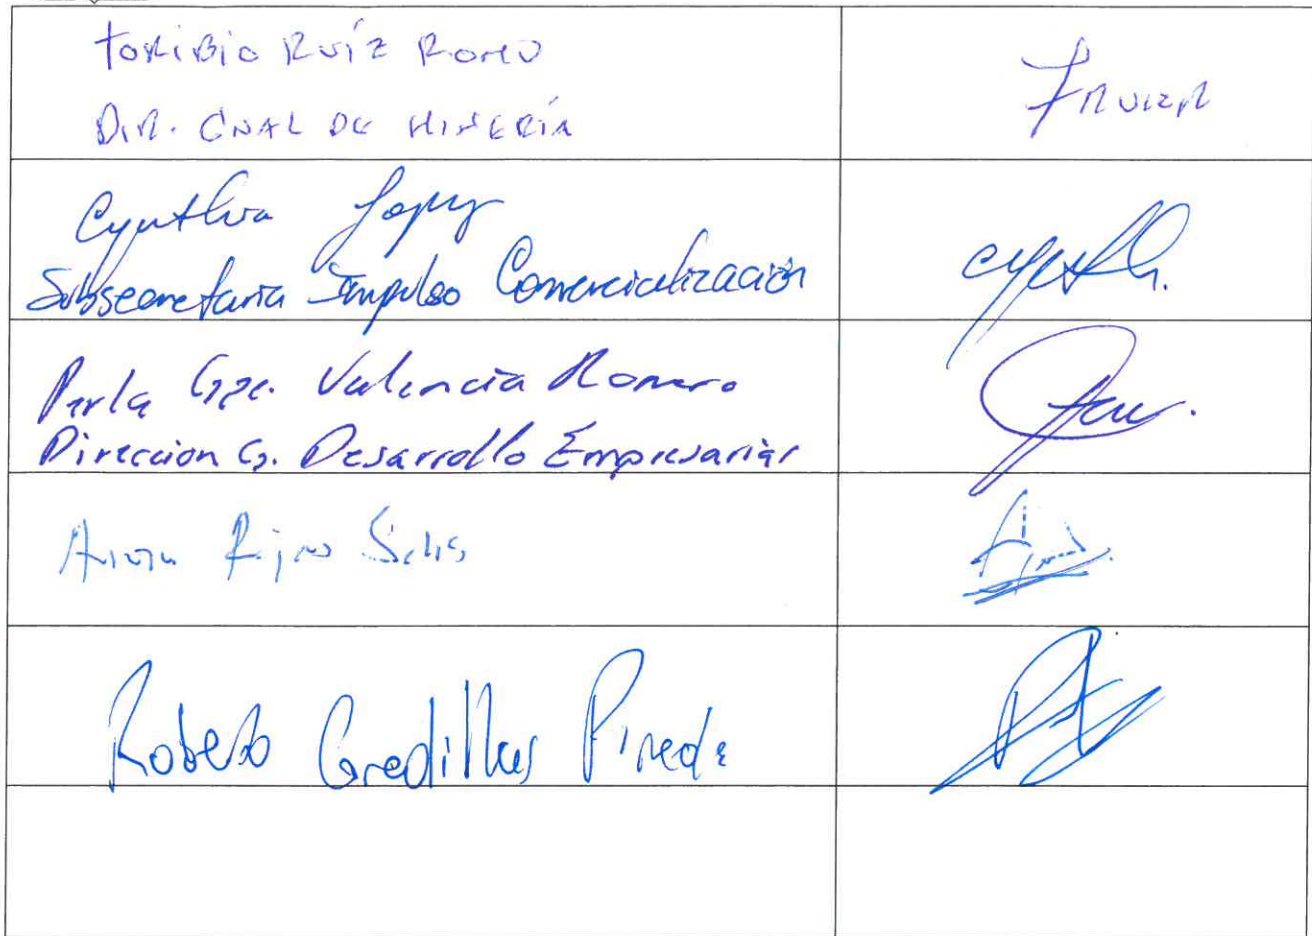 Toribio Ruíz Romo
Dir. Gnal de Minería
Cynthia Lopez
Subsecretaria Impulso Comercialización
Perla Gpe. Valencia Romero
Dirección G. Desarrollo Empresarial
Solis
Roberto Gradillas Pineda